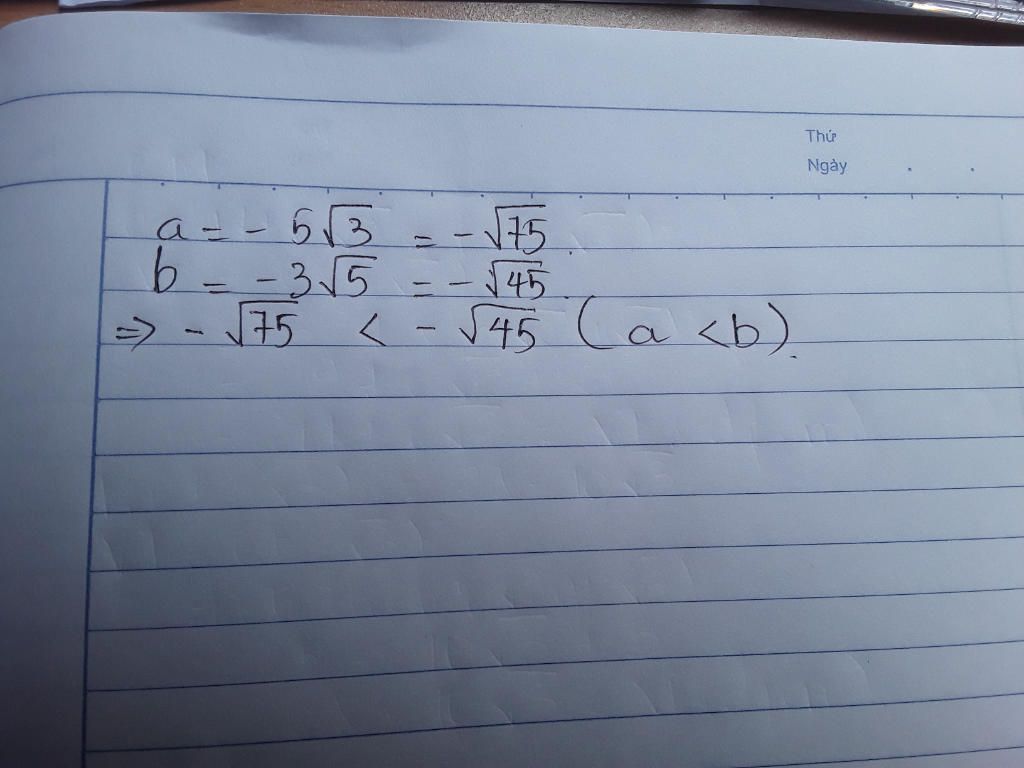 Thứ
Ngày . .
a = - 5√3 = - √75.
b = - 3√5 = - √45.
⇒ - √75 < - √45 ( a < b ).